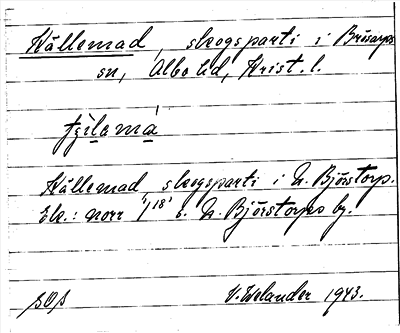 Källemad, skogsparti i Brösarps
sn, Albo hd, Krist. l.
Källemad, skogsparti i N. Björstorp.
Ek.: norr N. Björstorps by.
SOS V. Welander 1943.